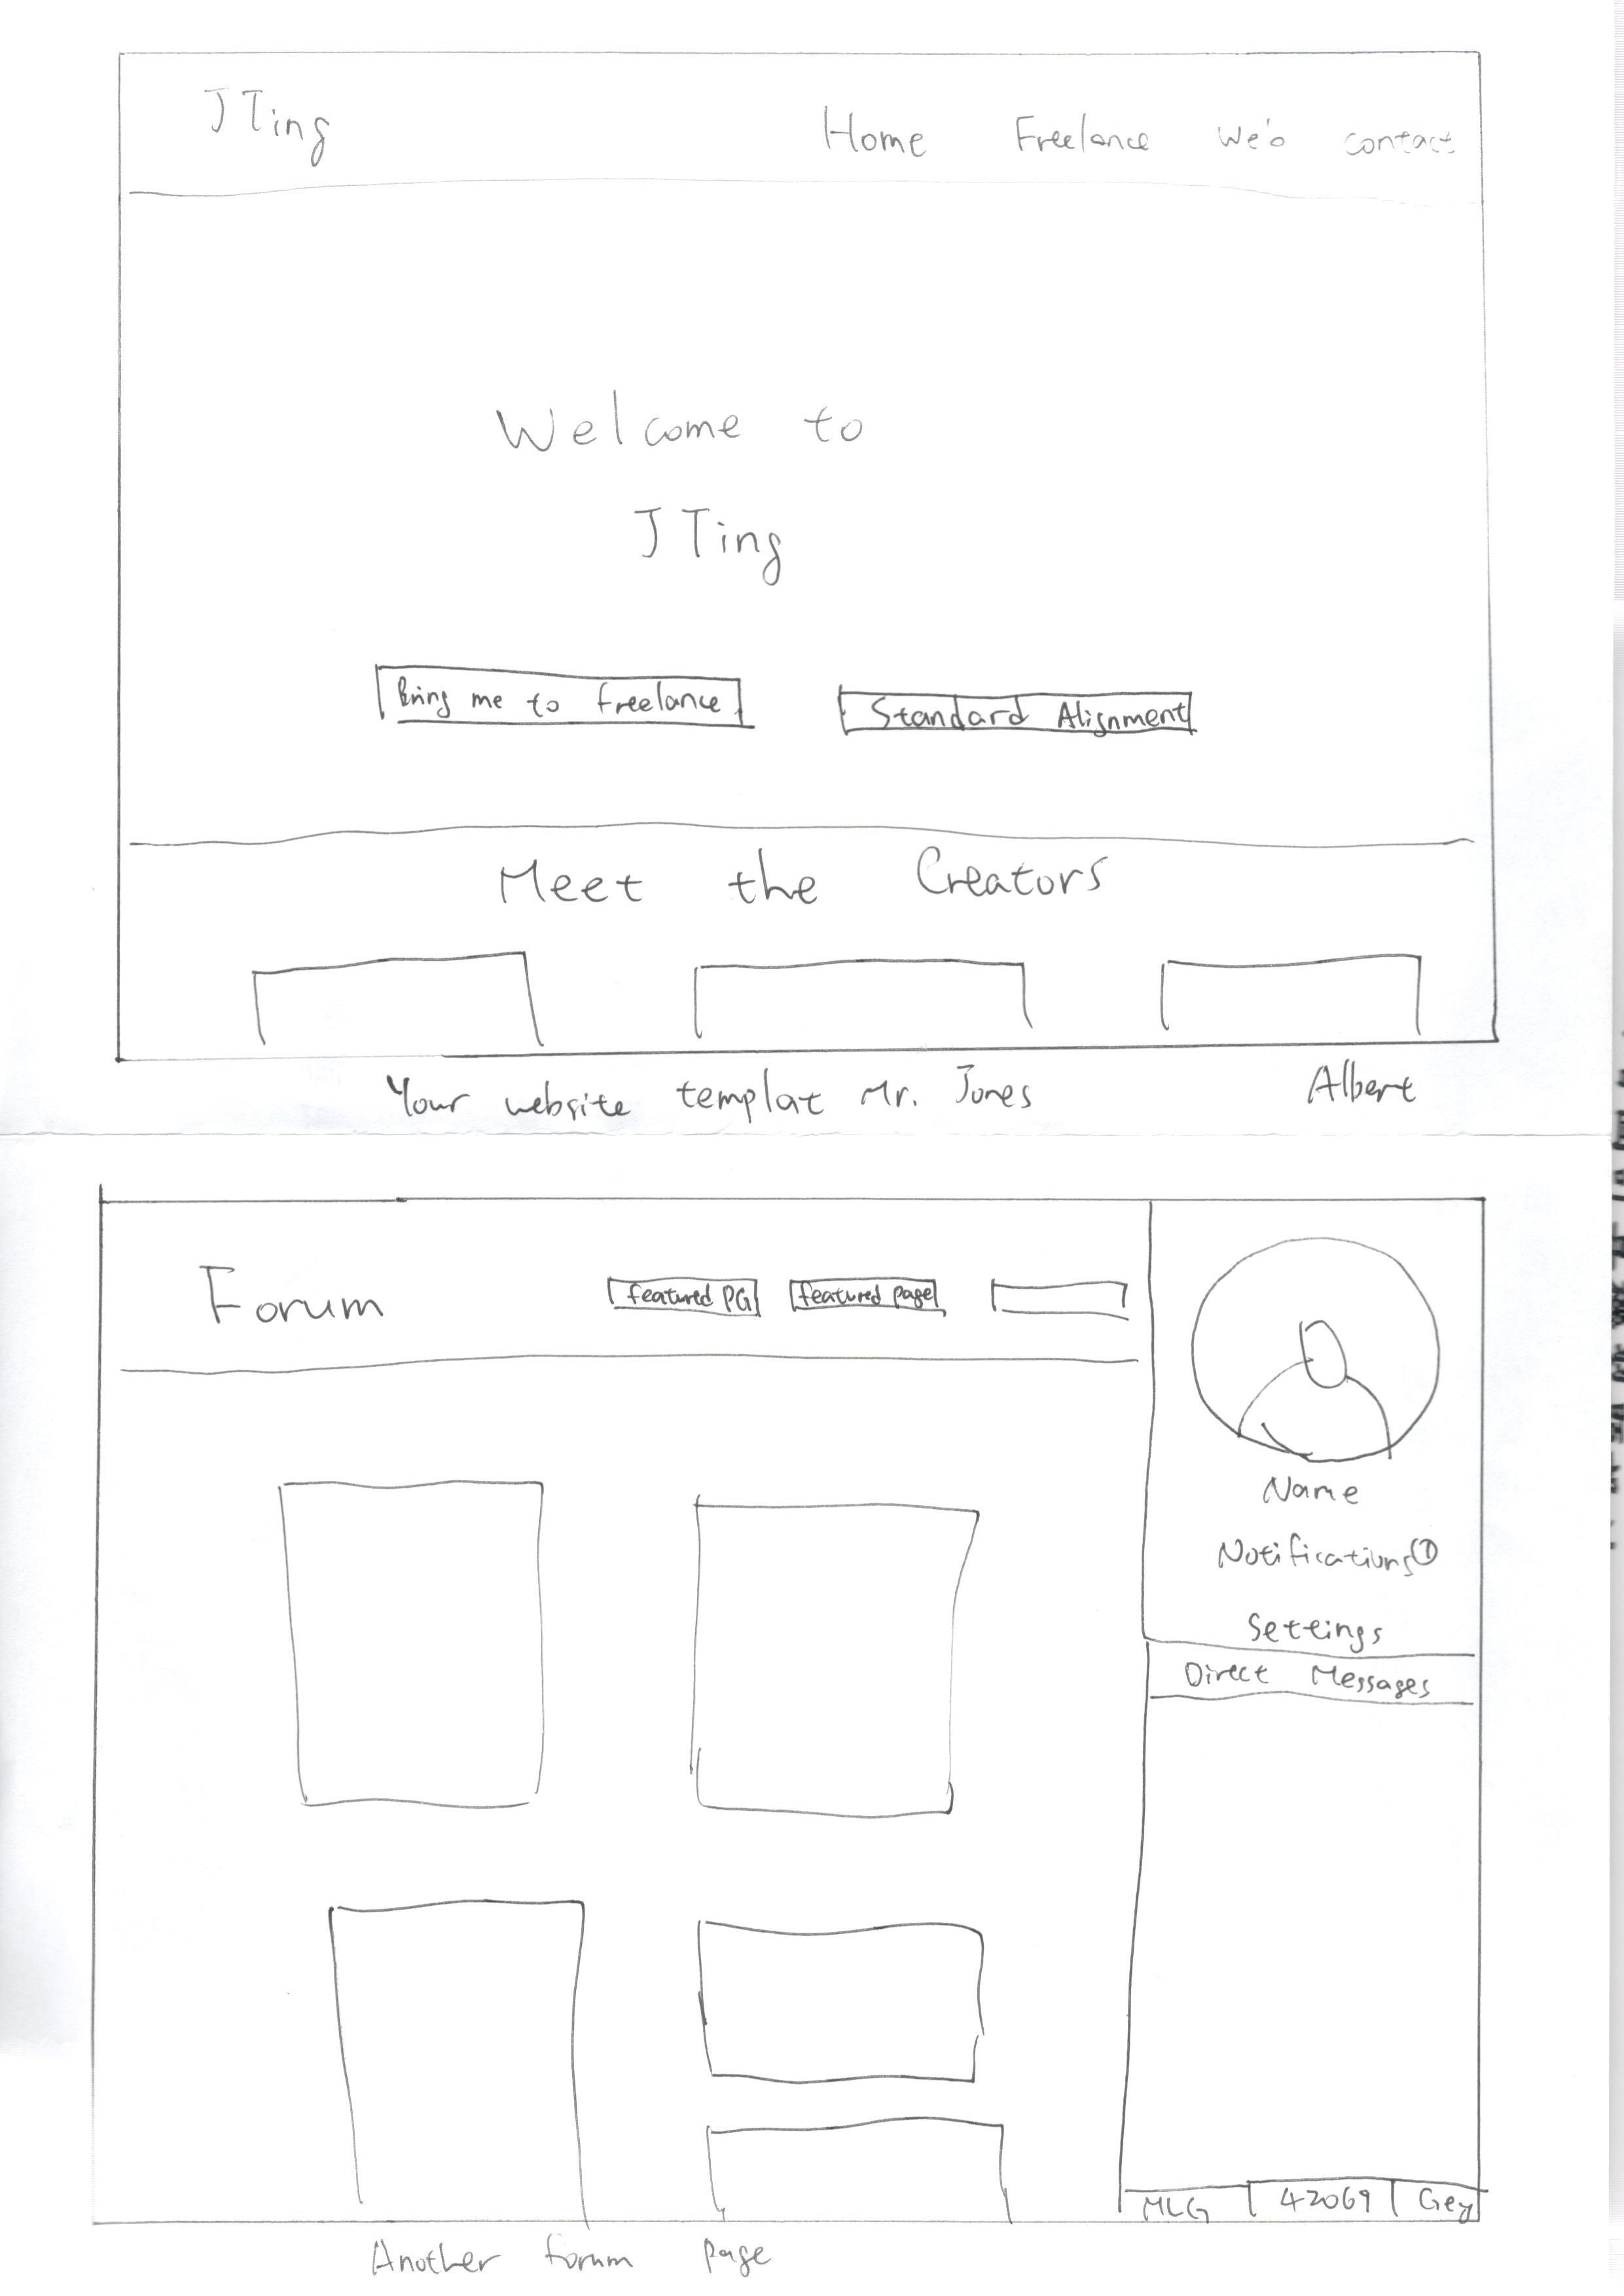 JTing
Home Freelance contact
Welcome to
JTing
Bring me to freelance
Standard Alignment
Meet the Creators
Your website templat Mr. Jones
Albert
Forum
featured PG
featured page
Name
Notifications 1
Settings
Direct Messages
MLG 42069 Gey
Another forum page